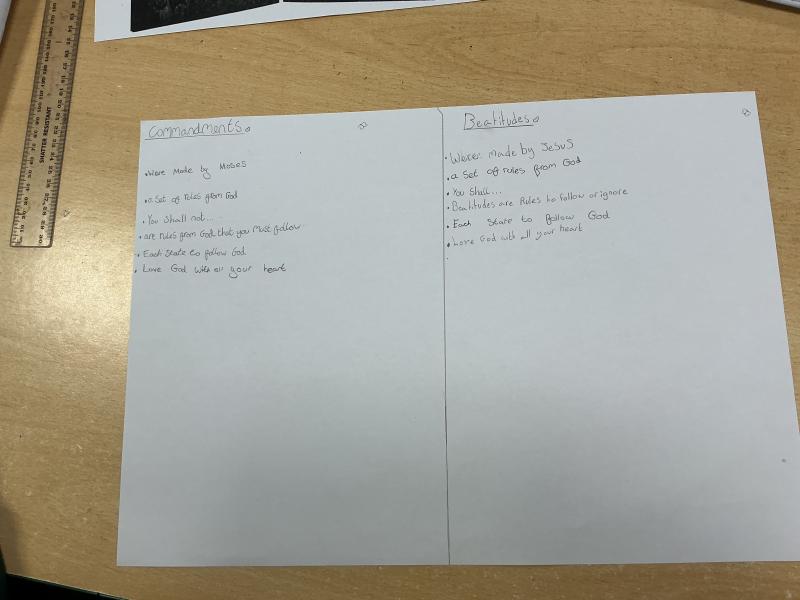 SHATTER RESISTANT
Commandments
• Were Made by Moses
• a Set of rules from God
• You Shall not...
• are rules from God that you Must follow
• Each State to follow God
• Love God with all your heart
Beatitudes
• Were made by Jesus
• a Set of rules from God
• You Shall...
• Beatitudes are Rules to follow or ignore
• Each State to follow God
• Love God with all your heart
•